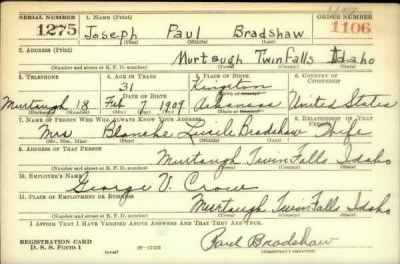 SERIAL NUMBER 1. NAME (Print) ORDER NUMBER
1275 Joseph Paul Bradshaw 1106
(First) (Middle) (Last)
2. ADDRESS (Print)
Murtaugh Twin Falls Idaho
(Number and street or R. F. D. number) (Town) (County) (State)
3. TELEPHONE 4. AGE IN YEARS 5. PLACE OF BIRTH 6. COUNTRY OF CITIZENSHIP
31 Kingston
DATE OF BIRTH
Murtaugh 18 Feb 7 1909 Arkansas United States
(Mo.) (Day) (Yr.)
7. NAME OF PERSON WHO WILL ALWAYS KNOW YOUR ADDRESS 8. RELATIONSHIP OF THAT PERSON
Mrs Blanche Lucile Bradshaw Wife
(Mr., Mrs., Miss) (First) (Middle) (Last)
9. ADDRESS OF THAT PERSON
Murtaugh Twin Falls Idaho
(Number and street or R. F. D. number) (Town) (County) (State)
10. EMPLOYER'S NAME
George V. Crowe
11. PLACE OF EMPLOYMENT OR BUSINESS
Murtaugh Twin Falls Idaho
(Number and street or R. F. D. number) (Town) (County) (State)
I AFFIRM THAT I HAVE VERIFIED ABOVE ANSWERS AND THAT THEY ARE TRUE.
REGISTRATION CARD
D. S. S. Form 1
Paul Bradshaw
(Registrant's signature)